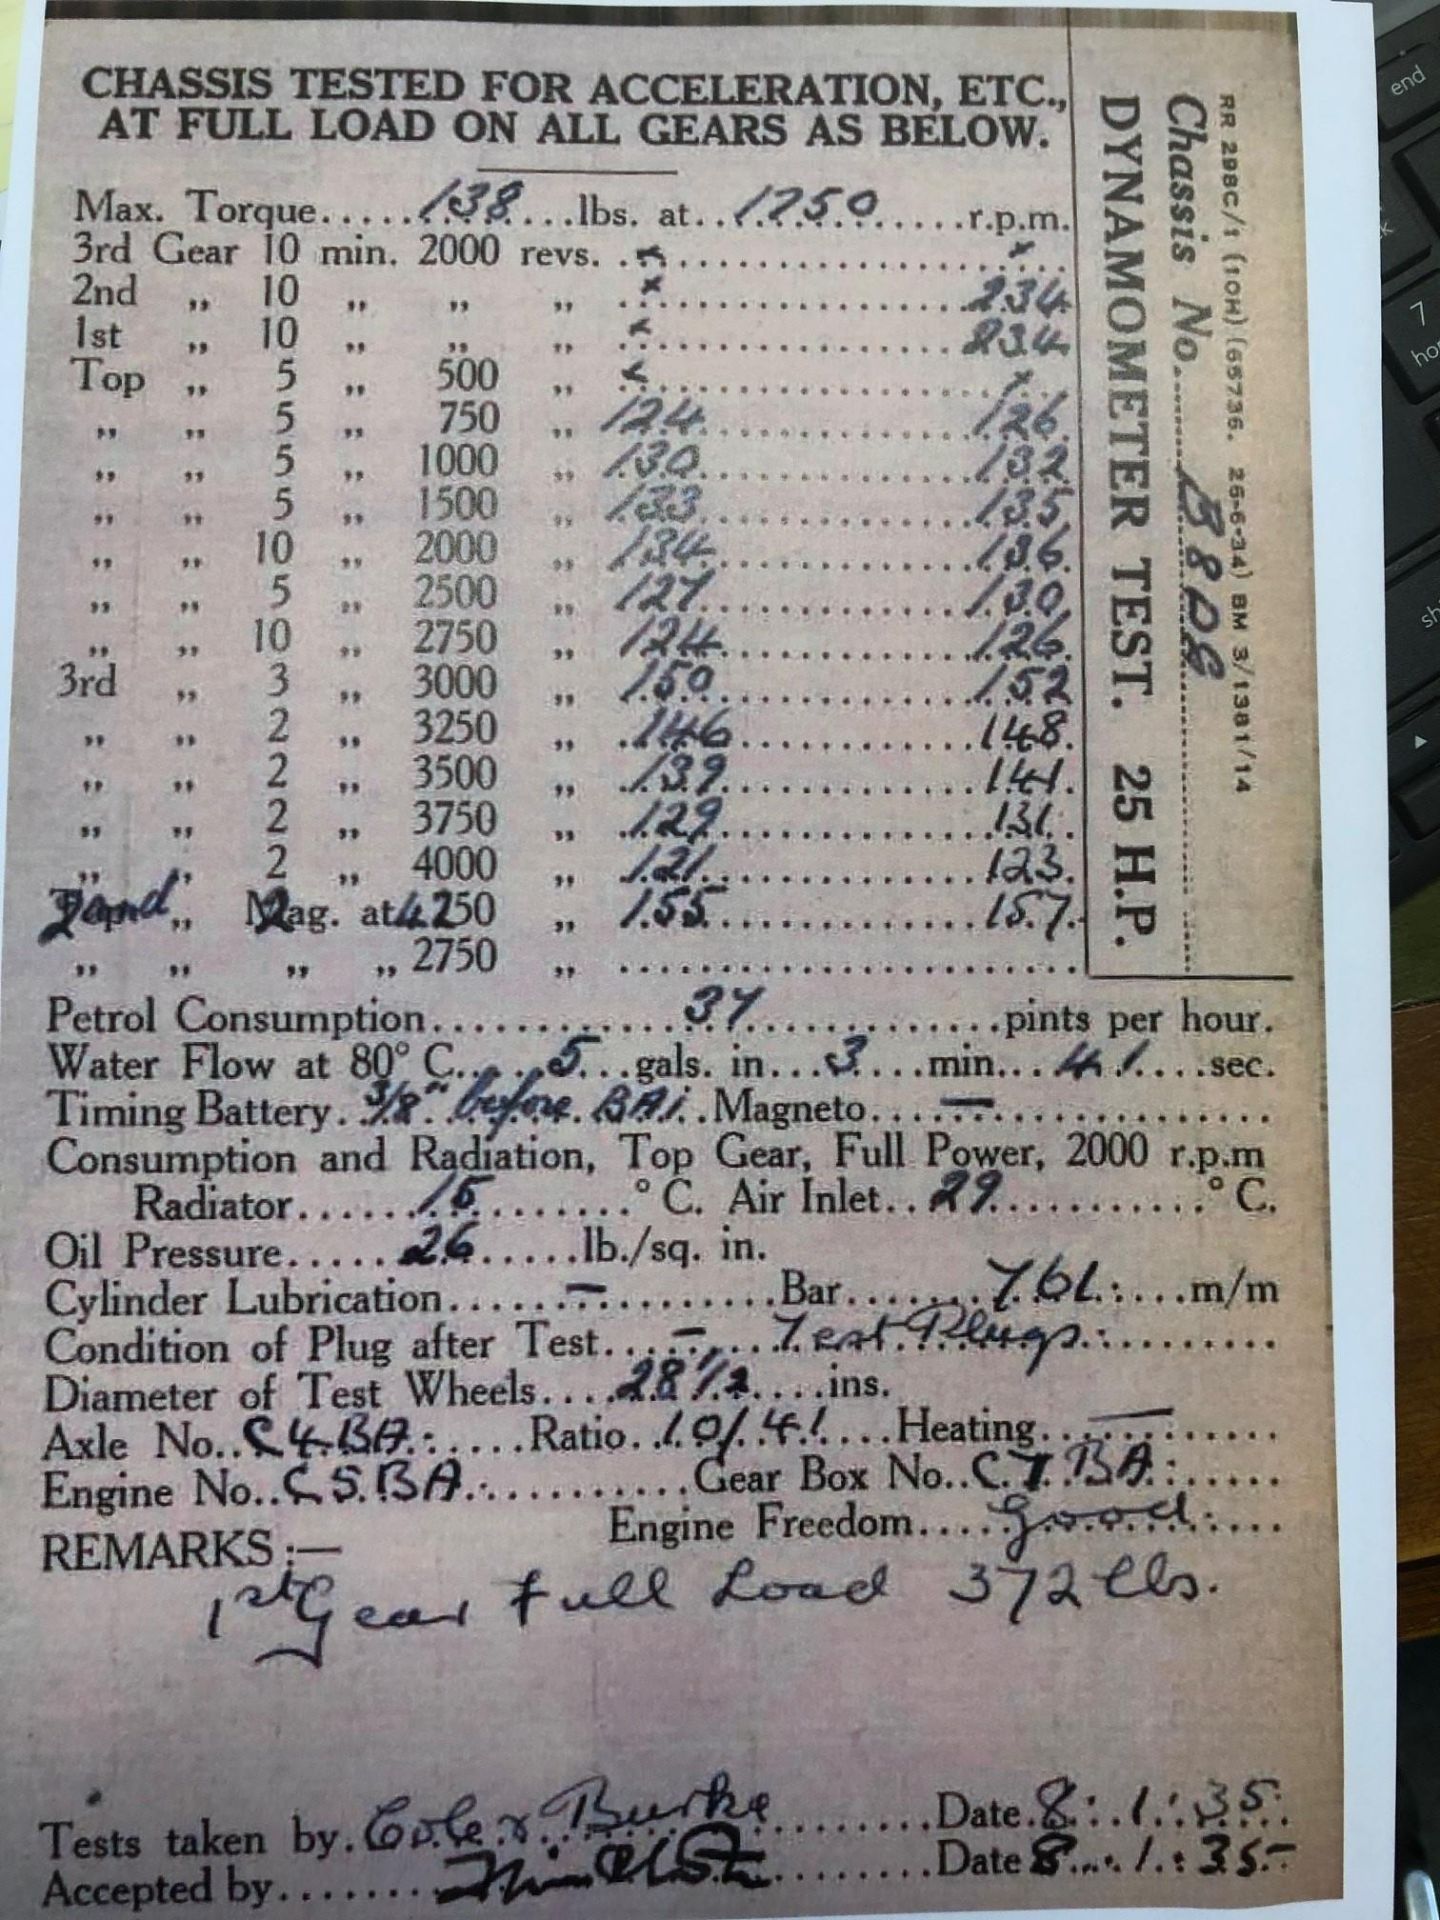 CHASSIS TESTED FOR ACCELERATION, ETC.,
AT FULL LOAD ON ALL GEARS AS BELOW.
Max. Torque.....138....lbs. at..1750......r.p.m.
3rd Gear 10 min. 2000 revs. ..x....................x....
2nd „ 10 „ „ „ ..x....................234
1st „ 10 „ „ „ ..x....................234
Top „ 5 „ 500 „ x....................x....
„ „ 5 „ 750 „ 124....................126.
„ „ 5 „ 1000 „ 130....................132
„ „ 5 „ 1500 „ 133....................135
„ „ 10 „ 2000 „ 134....................136.
„ „ 5 „ 2500 „ 127....................130
„ „ 10 „ 2750 „ 124....................126.
3rd „ 3 „ 3000 „ 150....................152
„ „ 2 „ 3250 „ 146....................148.
„ „ 2 „ 3500 „ 139....................141.
„ „ 2 „ 3750 „ 129....................131.
„ „ 2 „ 4000 „ 121....................123.
2nd „ Mag. at 4250 „ 155....................157.
„ „ „ „ 2750 „ ........................
Petrol Consumption............37............pints per hour.
Water Flow at 80° C.....5...gals. in...3....min...41....sec.
Timing Battery. 3/8" before BAI. Magneto....—..............
Consumption and Radiation, Top Gear, Full Power, 2000 r.p.m
Radiator......15.........° C. Air Inlet..29...........° C.
Oil Pressure.....26.....lb./sq. in.
Cylinder Lubrication......—.........Bar......761.....m/m
Condition of Plug after Test....—....Test Plugs..........
Diameter of Test Wheels....28 1/2....ins.
Axle No..C4.BA......Ratio..10/.41....Heating..—..........
Engine No..C5.BA...........Gear Box No..C7.BA......
Engine Freedom....Good......
REMARKS :—
1st Gear Full Load 372 lbs.
Tests taken by. Burke.........Date.8.1.35.
Accepted by.................Date 8...1.35-
DYNAMOMETER TEST. 25 H.P.
Chassis No. B8DE
RR 298C/1 (10H) (65736. 26-6-34) BM 3/1381/14
end
7